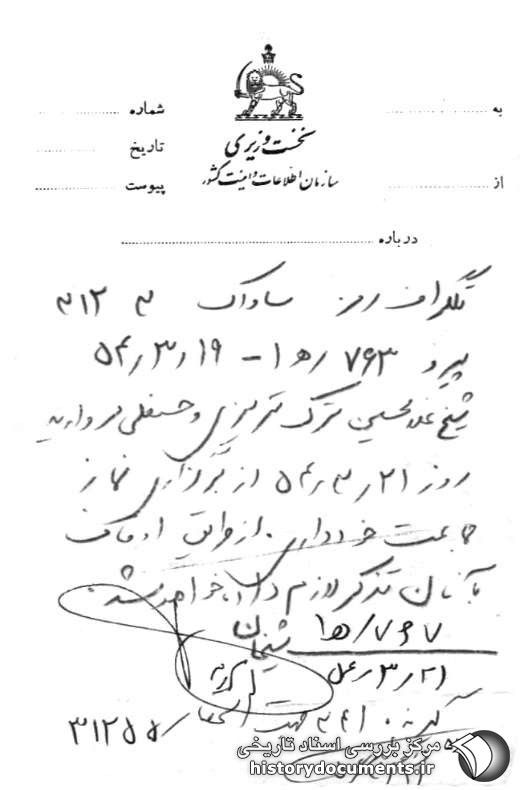 به
شماره
نخست وزیری
تاریخ
سازمان اطلاعات و امنیت کشور
از
پیوست
درباره
تلگراف رمز ساواک
پیرو ۷۶۳/ﻫ۱ - ۵۴/۳/۱۹
شیخ غلامحسین ترک تبریزی و حسنعلی مروارید
روز ۵۴/۳/۲۱ از برگزاری نماز
جماعت خودداری. از طریق اوقاف
بآنان تذکر لازم داده خواهد شد.
شیخان
۷۶۷/ﻫ۱
۳۱۲۵۵
مرکز بررسی اسناد تاریخی
historydocuments.ir